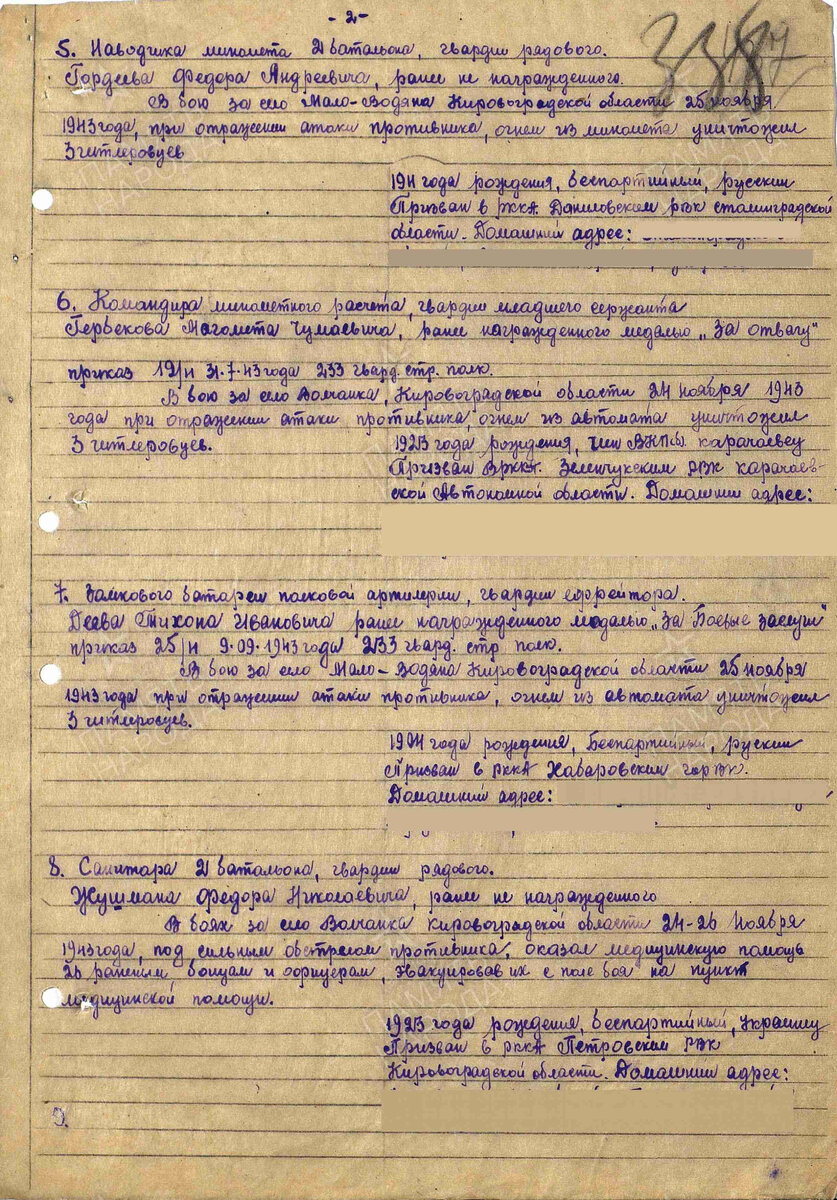 - 2 -
5. Наводчика миномета 2 батальона, гвардии рядового.
Гордеева Федора Андреевича, ранее не награжденного.
В бою за село Мало-Водяна Кировоградской области 25 ноября
1943 года, при отражении атаки противника, огнем из миномета уничтожил
3 гитлеровцев
1911 года рождения, беспартийный, русский
Призван в РККА Даниловским РВК Сталинградской
области. Домашний адрес:
6. Командира минометного расчета, гвардии младшего сержанта
Гербекова Магомета Чумаевича, ранее награжденного медалью „За отвагу"
приказ 19/н 31.7.43 года 233 гвард. стр. полк.
В бою за село Волчанка, Кировоградской области 24 ноября 1943
года при отражении атаки противника, огнем из автомата уничтожил
3 гитлеровцев.
1923 года рождения, член ВКП(б), карачаевец
Призван в РККА Зеленчукским РВК Карачаев-
ской Автономной области. Домашний адрес:
7. Замкового батареи полковой артилерии, гвардии ефрейтора.
Деева Тихона Ивановича ранее награжденного медалью „За Боевые заслуги"
приказ 25/н 9.09.1943 года 233 гвард. стр полк.
В бою за село Мало-Водяна Кировоградской области 25 ноября
1943 года при отражении атаки противника, огнем из автомата уничтожил
3 гитлеровцев.
года рождения, Беспартийный, руский
Призван в РККА Хабаровским горВК.
Домашний адрес:
8. Санитара 2 батальона, гвардии рядового.
Жушмана Федора Николаевича, ранее не награжденного
В боях за село Волчанка Кировоградской области 24-26 Ноября
1943 года, под сильным обстрелом противника, оказал медицинскую помощь
раненым бойцам и офицерам, эвакуировав их с поле боя на пункт
медицинской помощи.
1923 года рождения, беспартийный, Украинец
Призван в РККА Петровским РВК
Кировоградской области. Домашний адрес:
9.